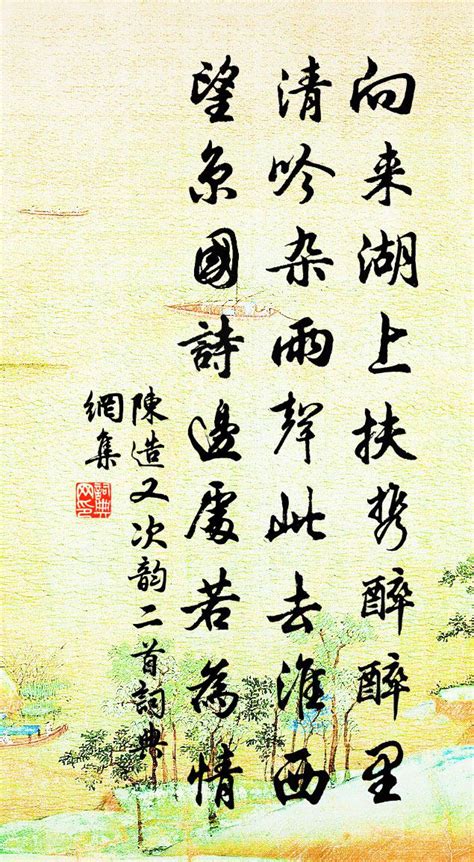 向来湖上扶携醉醉里
清吟杂雨声此去淮西
望京國詩邊處若為情
陳造又次韵二首詞典
網集
詞典
网印